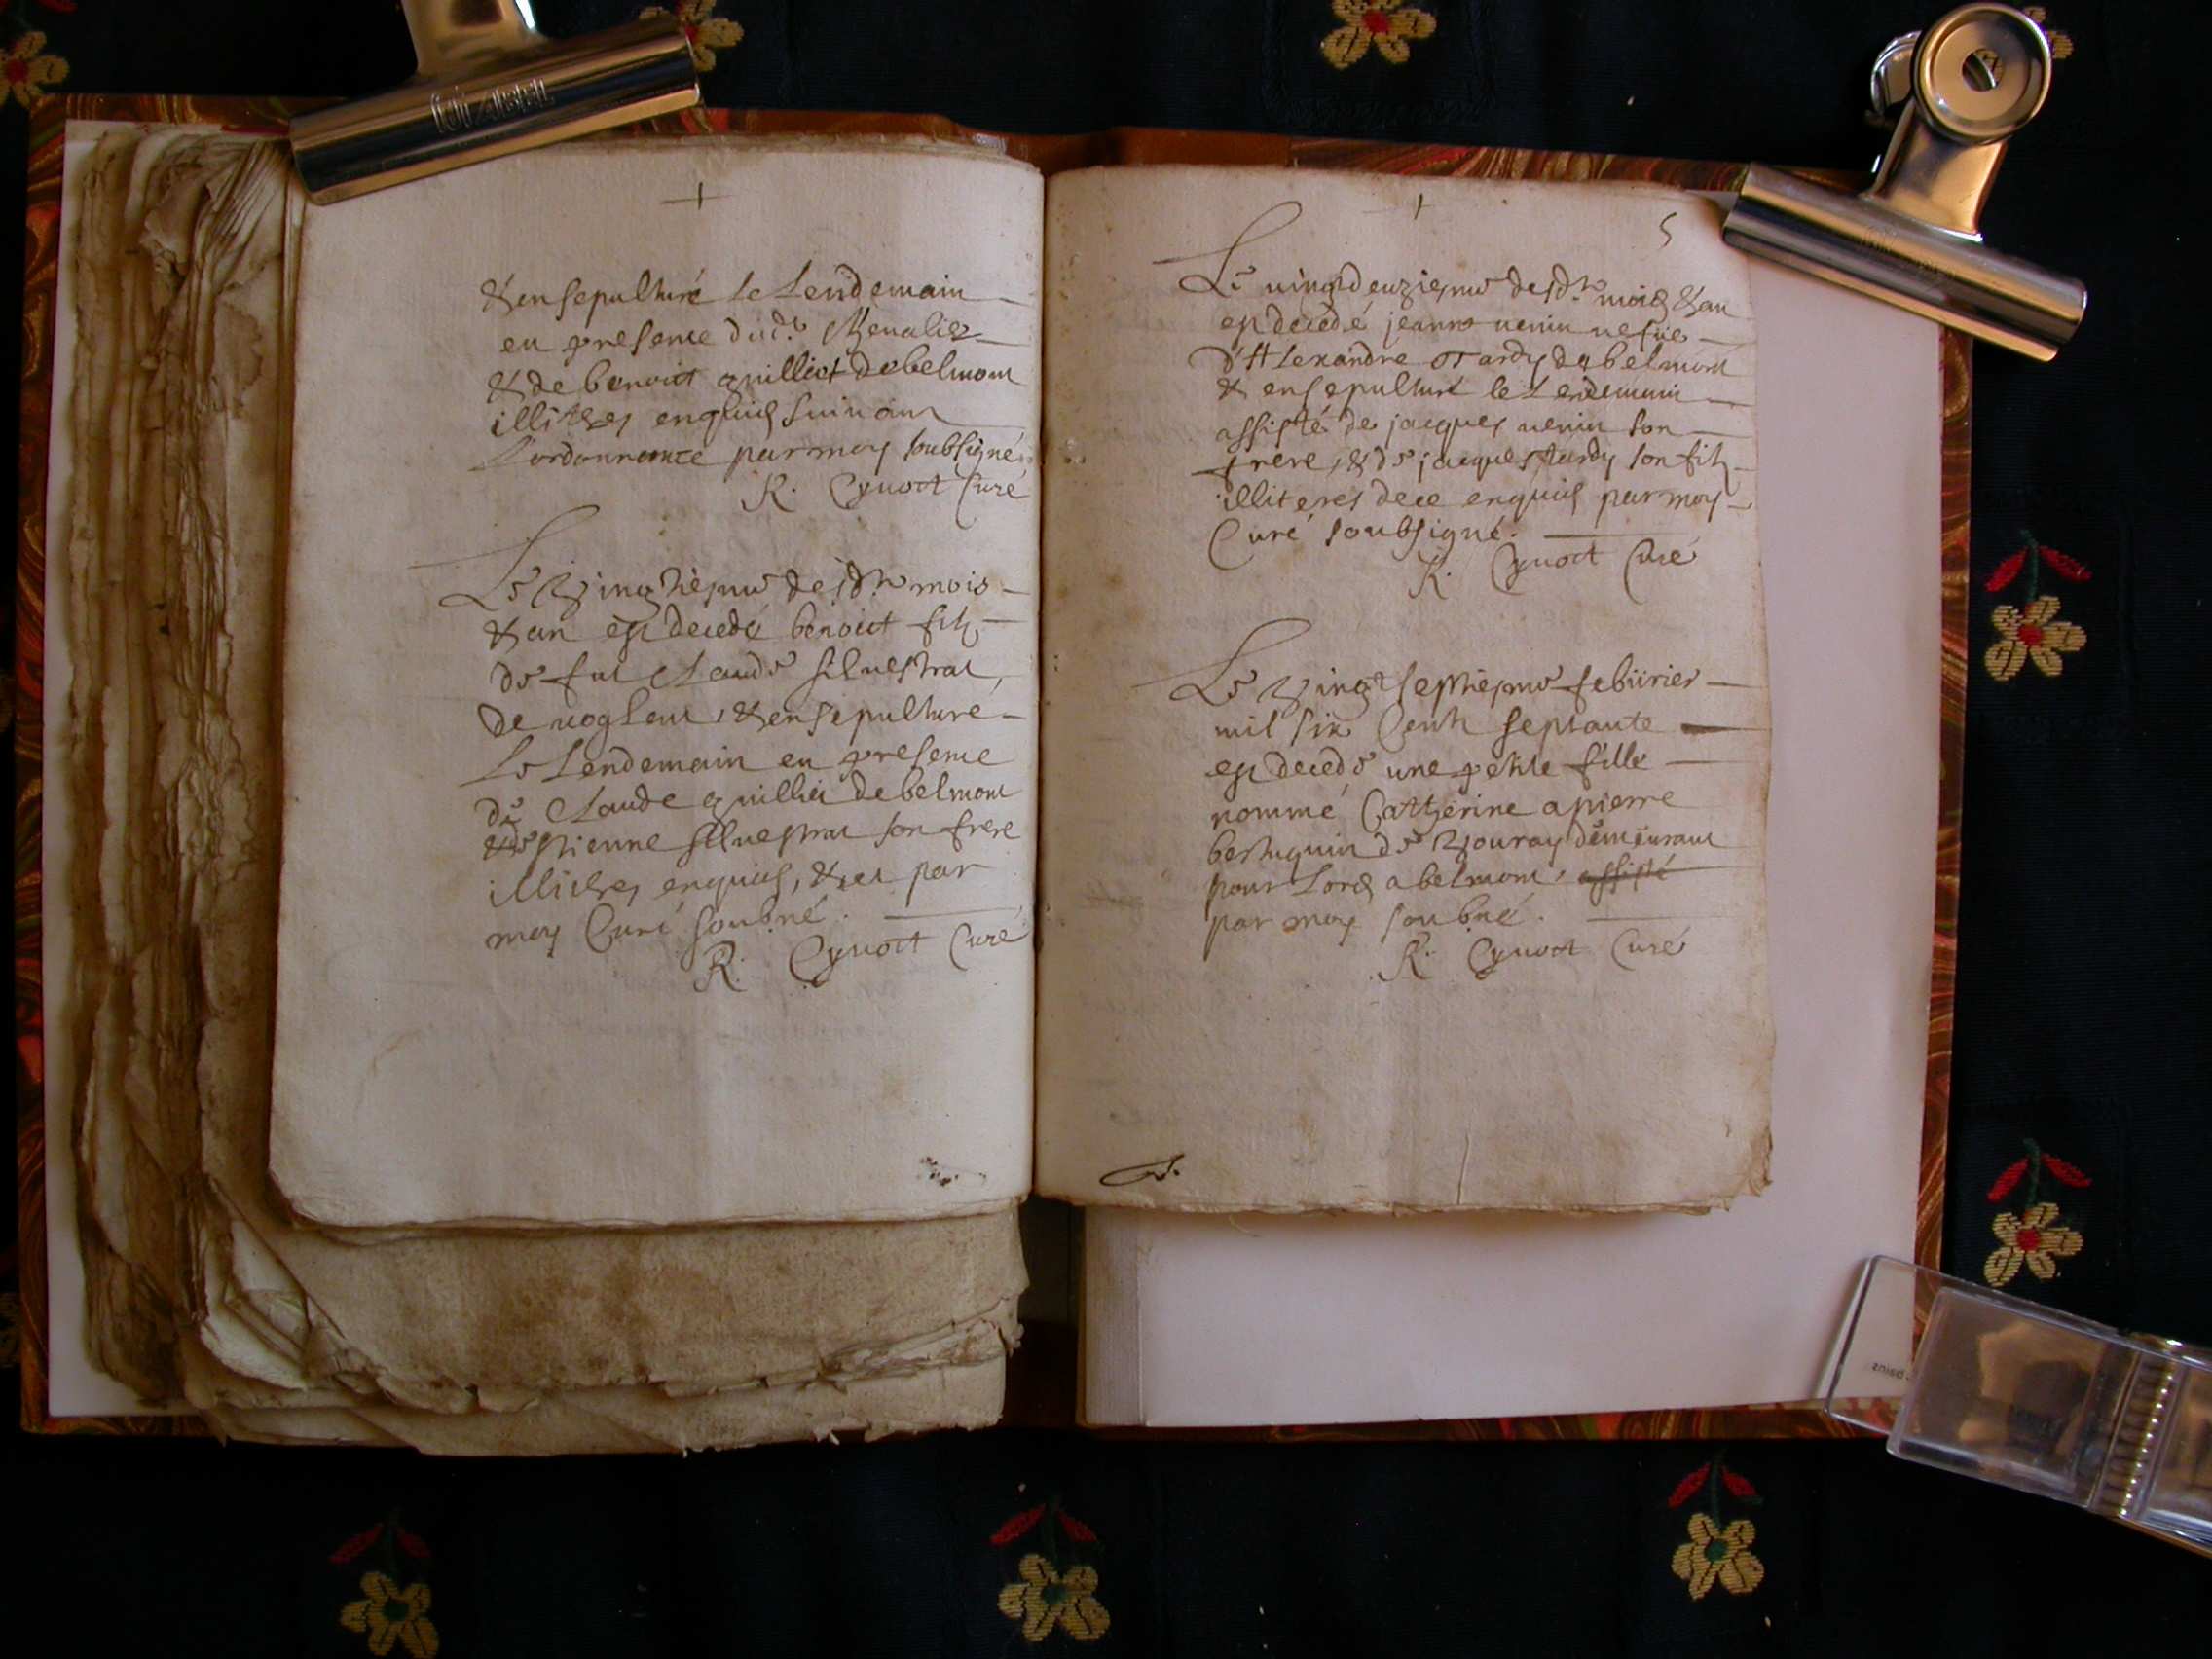 & ensepulturé le Lendemain
en presence dud.t Chevalier
& de benoict guilliet de belmont
illitéres enquis suivant
l'ordonnance par moy soubsigné
R. Cyvoct Curé
Le Vingtiesme desd.ts mois
& an est decedé benoict filz
de fut Claude silvestrat
de vogleut, & ensepulturé
Le Lendemain en presence
de Claude guilliet de belmont
& d'estienne silvestrat son frere
illitéres enquis, & ce par
moy Curé soubné.
R. Cyvoct Curé
5
Le vingtdeuziesme desd.ts mois & an
est decedé jeanne venin vefve
d'Alexandre Tardy de belmont
& ensepulturé le Lendemain
assisté de jacques venin son
frere, & de jacques tardy son filz
illiteres de ce enquis par moy
Curé soubsigné.
R. Cyvoct Curé
Le Vingt septiesme febvrier
mil six Cents septante
est decedé une petite fille
nommé Catherine a pierre
berthuguin de Vouray demeurant
pour Lors a belmont, assisté
par moy soubné.
R. Cyvoct Curé